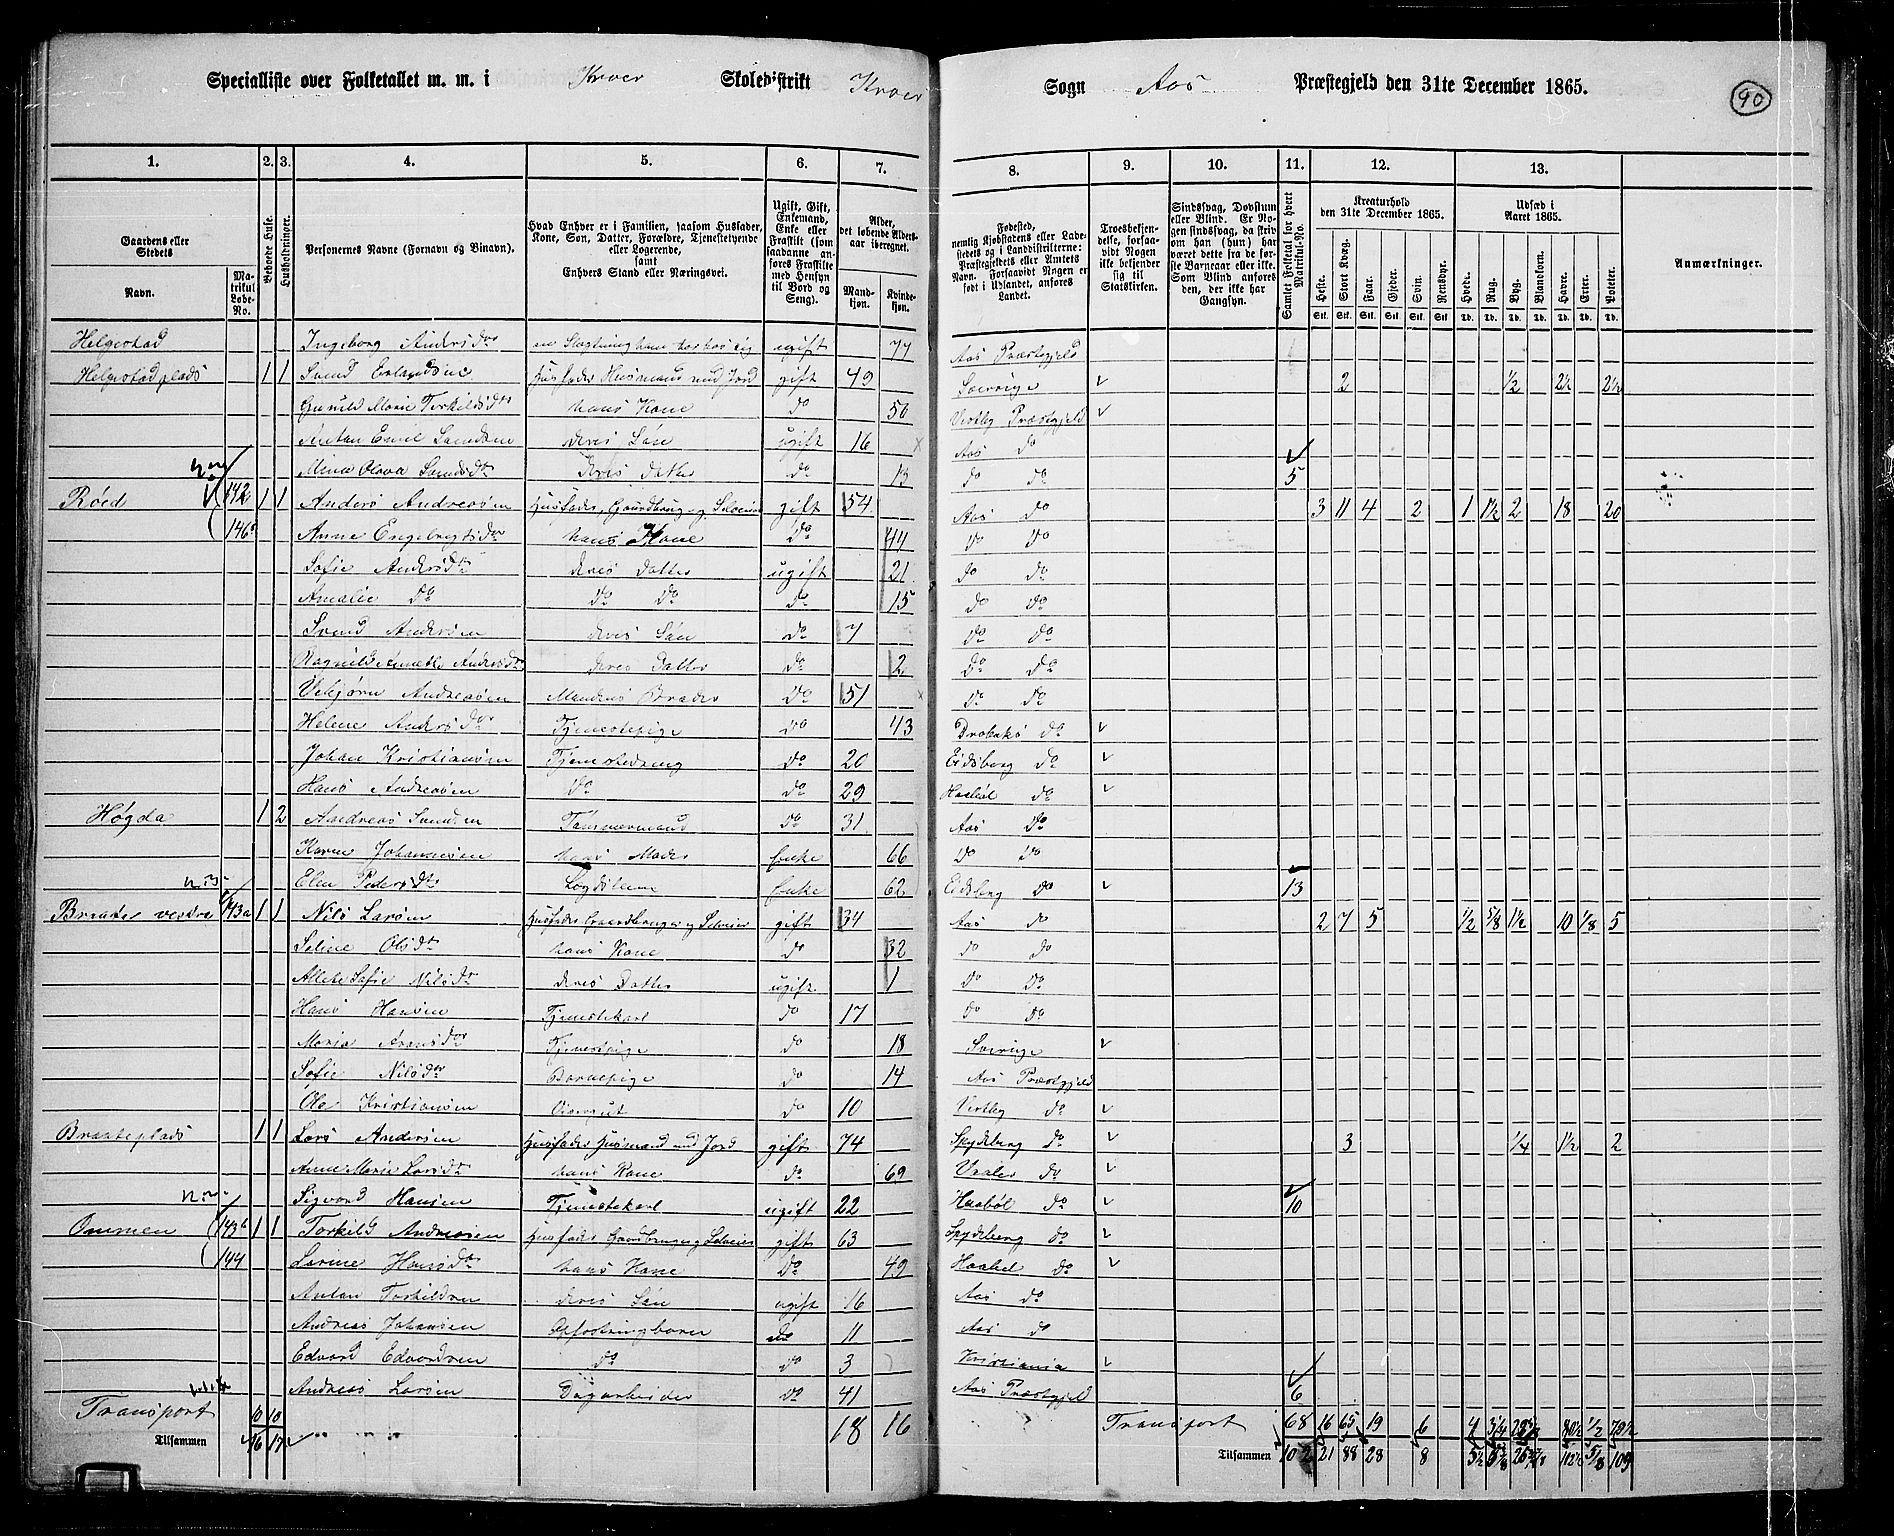 Specialliste over Folketallet m. m. i Kroer Skoledistrikt Kroer Sogn Aas Præstegjeld den 31te December 1865.
90
1. 2. 3. 4. 5. 6. 7. 8. 9. 10. 11. 12. 13.
Gaardens eller Stedets
Navn.
Matrikul Løbe-No.
Beboede Huse.
Husholdninger.
Personernes Navne (Fornavn og Binavn).
Hvad Enhver er i Familien, saasom Husfader, Kone, Søn, Datter, Forældre, Tjenestetyende eller Logerende, samt Enhvers Stand eller Næringsvei.
Ugift, Gift, Enkemand, Enke eller Fraskilt (som saadanne anføres Fraskilte med Hensyn til Bord og Seng).
Alder, det løbende Aldersaar iberegnet.
Mandkjøn. Kvindekjøn.
Fødested, nemlig Kjøbstadens eller Ladestedets og i Landdistrikterne: Præstegjeldets eller Amtets Navn. Forsaavidt Nogen er født i Udlandet, anføres Landet.
Troesbekjendelse, forsaavidt Nogen ikke bekjender sig til Statskirken.
Sindssvag, Døvstum eller Blind. Er Nogen sindssvag, da skriv om han (hun) har været dette fra de første Barneaar eller ikke. Som Blind anføres den, der ikke har Gangsyn.
Samlet Folketal for hvert Matrikul-No.
Kreaturhold den 31te December 1865.
Heste. Stort Kvæg. Faar. Gjeder. Svin. Rensdyr.
Stk. Stk. Stk. Stk. Stk. Stk.
Udsæd i Aaret 1865.
Hvede. Rug. Byg. Blandkorn. Havre. Erter. Poteter.
Td. Td. Td. Td. Td. Td. Td.
Anmærkninger.
Helgestad Ingeborg Andersdtr en Slægtning ham har hos sig ugift 77 Aas Præstegjeld
Helgestadplads 1 1 Svend Erlandsen Husfader Husmand med Jord gift 49 Sverrige 2 ½ 2½ 2½
Gunild Marie Torkildsdtr hans Kone do 50 Vestby Præstegjeld
Antan Emil Svendsen deres Søn ugift 16 Aas do
Mina Olava Svendsdtr deres Datter do 13 do do 5
Røed 142 1 1 Anders Andreasen Husfader, Gaardbrug. og Selveier gift 54 Aas do 3 11 4 2 1 1½ 2 18 20
146 Anne Engebregtsdtr hans Kone do 44 do do
Sofie Andersdtr deres Datter ugift 21 do do
Amalie do do do do 15 do do
Svend Andersen deres Søn do 7 do do
Ragnild Annette Andersdtr deres Datter do 2 do do
Vebjørn Andreasen Mandens Broder do 51 do do
Helene Andersdtr Tjenestepige do 43 Drøbaks do
Johan Kristiansen Tjenestedreng do 20 Eidsberg do
Hans Andreasen do do 29 Haabøl do
Høgda 1 2 Andreas Svendsen Tømmermand do 31 Aas do
Karen Johannesen hans Moder Enke 66 do do
Elen Pedersdtr Logdslem Enke 62 Eidsberg do 13
Braate vestre 143a 1 1 Nils Larsen Husfader Gaardbruger og Selveier gift 34 Aas do 2 7 5 ½ 5/8 1½ 10 1/8 5
Seline Olsdtr hans Kone do 32 do do
Allete Sofie Nilsdtr deres Datter ugift 1 do do
Hans Hansen Tjenestekarl do 17 do do
Maria Aronsdtr Tjenestpige do 18 Sverige
Sofie Nilsdtr Barnepige do 14 Aas Præstegjeld
Ole Kristiansen Gjætergut do 10 Vestby do
Braateplads 1 1 Lars Andersen Husfader Husmand med Jord gift 74 Spydeberg do 3 ¼ 1½ 2
Anne Marie Larsdtr hans Kone do 69 Vaaler do
Sigvard Hansen Tjenestekarl ugift 22 Haabøl do 10
Ommen 143b 1 1 Torkild Andreasen Husfader Gaardbruger og Selveier gift 63 Spydeberg do
144 Lovine Hansdtr hans Kone do 49 Haabel do
Antan Torkildsen deres Søn ugift 16 Aas do
Andreas Johansen Opfostringsbarn do 11 Aas do
Edvard Edvardsen do do 3 Kristiania
Andreas Larsen Dagarbeider do 41 Aas Præstgjeld 6
Transport 10 10 18 16 Transport 68 16 65 19 6 4 3¼ 80½ ½ 70½
Tilsammen 16 17 Tilsammen 102 21 88 28 8 5½ 5/8 109